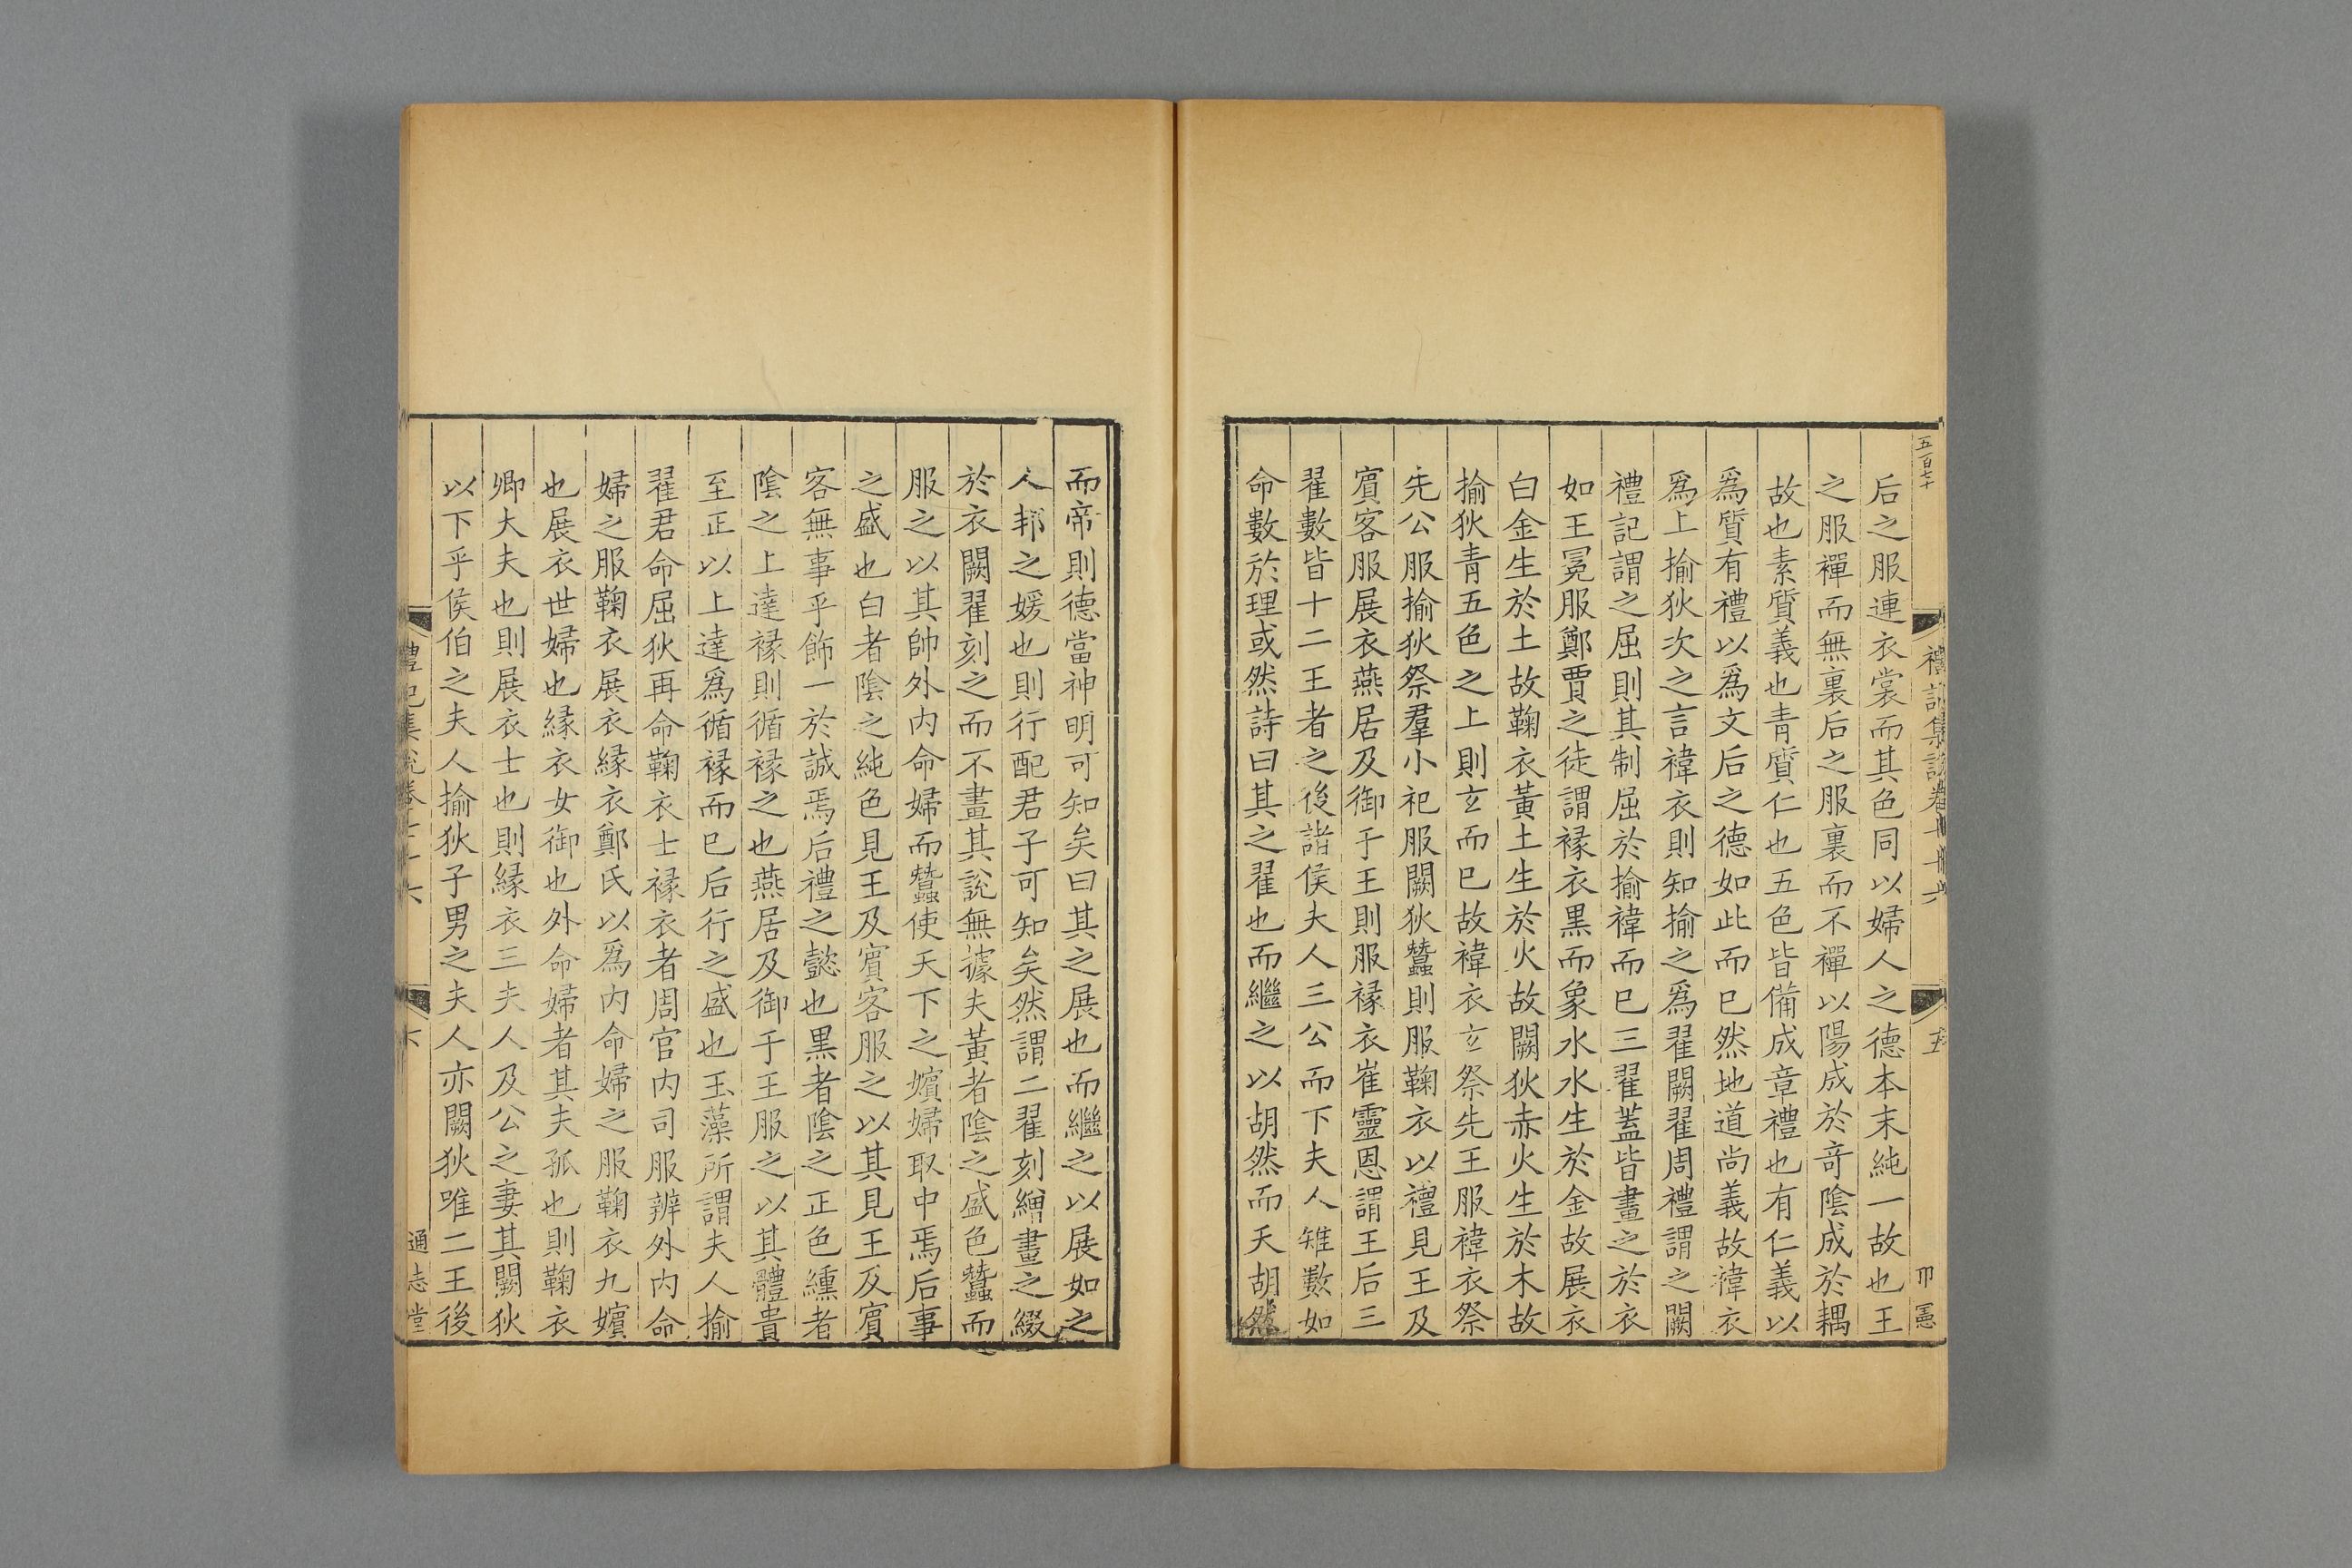 五百七十
禮記集說卷
五
后之服連衣裳而其色同以婦人之德本末純一故也王
之服襌而無裏后之服裏而不襌以陽成於奇陰成於耦
故也素質義也青質仁也五色皆備成章禮也有仁義以
爲質有禮以爲文后之德如此而已然地道尚義故褘衣
爲上揄狄次之言褘衣則知揄之爲翟闕翟周禮謂之闕
禮記謂之屈則其制屈於揄褘而已三翟蓋皆畫之於衣
如王冕服鄭賈之徒謂褖衣黑而象水水生於金故展衣
白金生於土故鞠衣黃土生於火故闕狄赤火生於木故
揄狄青五色之上則玄而已故褘衣玄祭先王服褘衣祭
先公服揄狄祭羣小祀服闕狄蠶則服鞠衣以禮見王及
賓客服展衣燕居及御于王則服褖衣崔靈恩謂王后三
翟數皆十二王者之後諸侯夫人三公而下夫人雉數如
命數於理或然詩曰其之翟也而繼之以胡然而天胡然
而帝則德當神明可知矣曰其之展也而繼之以展如之
人邦之媛也則行配君子可知矣然謂二翟刻繒畫之綴
於衣闕翟刻之而不畫其說無據夫黃者陰之盛色蠶而
服之以其帥外内命婦而蠶使天下之嬪婦取中焉后事
之盛也白者陰之純色見王及賓客服之以其見王及賓
客無事乎飾一於誠焉后禮之懿也黒者陰之正色纁者
陰之上達褖則循褖之也燕居及御于王服之以其體貴
至正以上達爲循褖而已后行之盛也玉藻所謂夫人揄
翟君命屈狄再命鞠衣士褖衣者周官内司服辨外内命
婦之服鞠衣展衣緣衣鄭氏以爲内命婦之服鞠衣九嬪
也展衣世婦也緣衣女御也外命婦者其夫孤也則鞠衣
卿大夫也則展衣士也則緣衣三夫人及公之妻其闕狄
以下乎侯伯之夫人揄狄子男之夫人亦闕狄唯二王後
禮記集說卷
六
通志堂